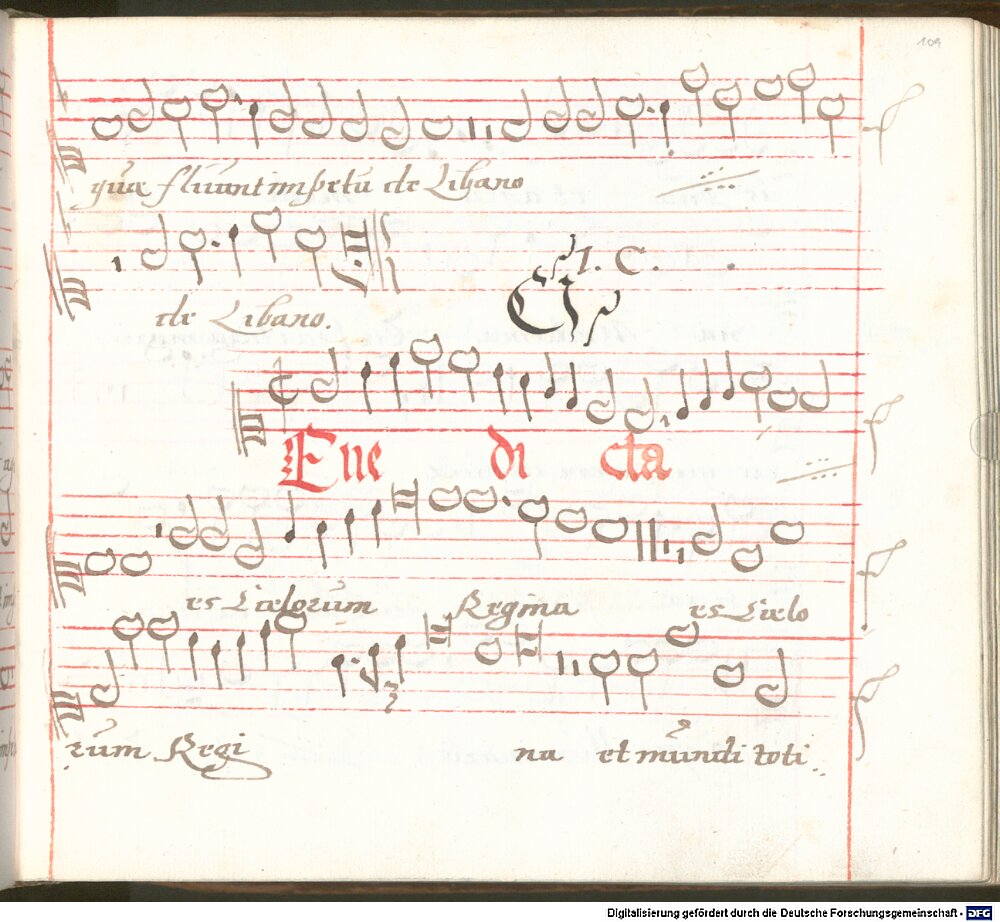 109
quæ fluunt impetu de Libano
de Libano.
I. C.
Ene di cta
es Cœlorum Regina es Cœlo
rum Regi na et mundi toti
Digitalisierung gefördert durch die Deutsche Forschungsgemeinschaft - DFG